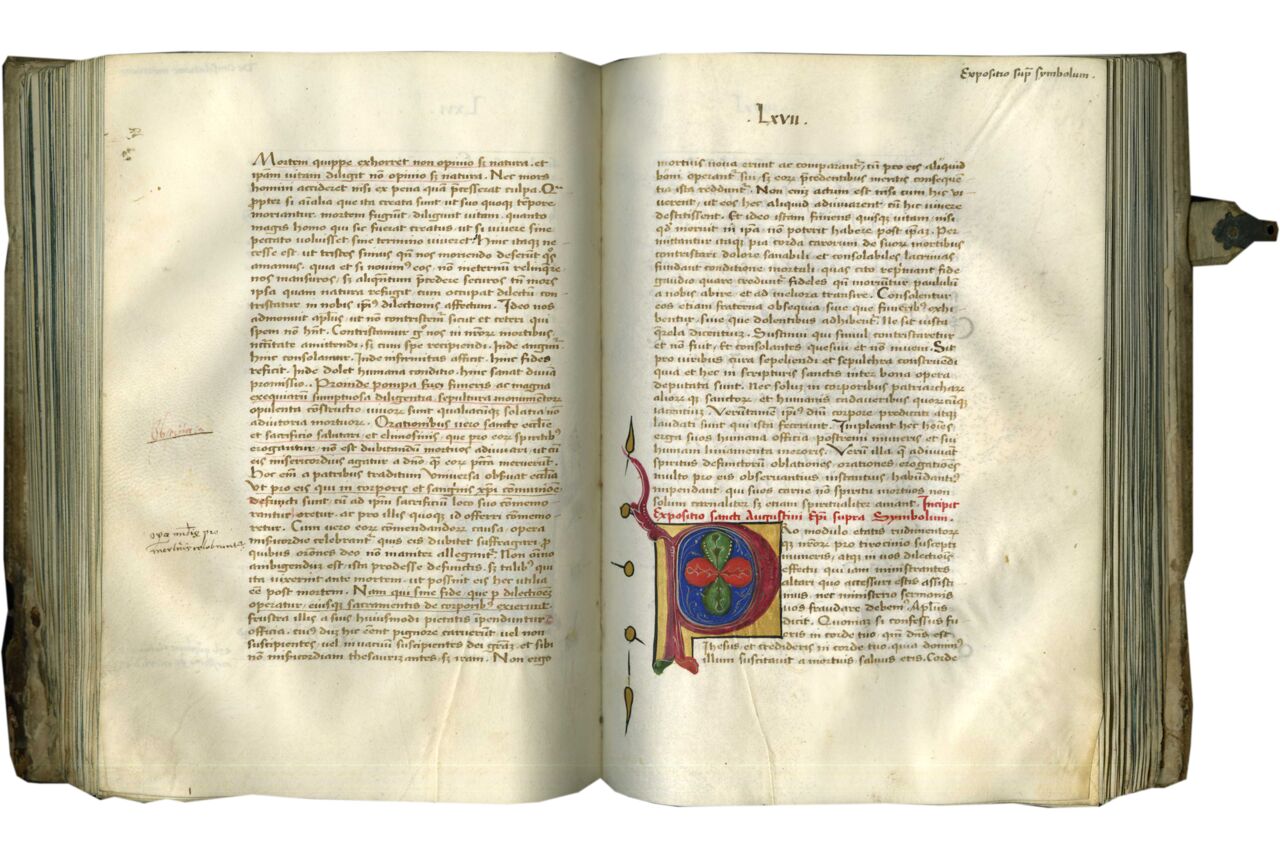 Mortem quippe exhorret non opinio sꝫ natura. et
ipam vitam diligit nō opinio sꝫ natura. Nec mors
homini accideret nisi ex pena quā p̄cesserat culpa. Q
ꝓpter si aīalia que ita creata sunt ut suo quoqꝫ tēpore
moriantur. mortem fugiūt, diligunt uitam. quanto
magis homo qui sic fuerat creatus ut si uiuere sine
peccato uoluisset sine termino uiueret? Hinc itaqꝫ ne
cesse est ut tristes simus qn̄ nos moriendo deserūt qͦs
amamus. quia et si nouimꝰ eos nō īeternū relinqͤre
nos mansuros, sꝫ aliqn̄tum p̄cedere secuturos tn̄ mors
ipsa quam natura refugit cum occupat dilectū con
tristatur in nobis ipiꝰ dilectionis affectum. Ideo nos
admonuit aplus ut nō contristemr̄ sicut et ceteri qui
spem nō hn̄t. Contristamur gͦ nos in nr̄oꝝ mortibus
nc̄itate amittendi, sꝫ cum spe recipiendi. Inde angim̄
hinc consolamur. Inde infirmitas afficit. hinc fides
reficit. Inde dolet humana conditio, hinc sanat diuīa
promissio. Proinde pompa funeris ac magna
exequiarū sumptuosa diligentia sepultura monumētoꝝ
opulenta cōstructio uiuoꝝ sunt qualiacūqꝫ solatia nō
adiutoria mortuoꝝ. Orationibus uero sancte eccl̄ie
et sacrificio salutari et elimosinis, que pro eoꝝ spiritibꝰ
erogantur, nō est dubitandū mortuos adiuuari, ut cū
eis misericordius agatur a dn̄o, qͣ eoꝝ pccā meruerūt.
Hoc em̄ a patribus traditum uniuersa obseruat eccl̄ia
ut pro eis qui in corporis et sanguis xp̄i comunione
defuncti sunt, cū ad ipm̄ sacrificiū loco suo comemo
rantur, oretur, ac pro illis quoqꝫ id offerri comemo
retur. Cum uero eoꝝ cōmendandoꝝ causa, opera
misicordie celebrant᷑ quis eis dubitet suffragari, ꝓ
quibus oriones deo nō inaniter allegant᷑? Non oīno
ambigendum est ista prodesse defunctis, sꝫ talibꝰ qui
ita uixerint ante mortem, ut possint eis hec utilia
eē post mortem. Nam qui sine fide, que p dilectioēꝫ
operatur, eiusqꝫ sacramentis de corporibꝰ exierunt,
frustra illis a suis huiusmodi pietatis ipenduntur
officia, cuiꝰ dum hic eēnt pignore caruerūt uel non
suscipientes, uel in uacuū suscipientes dei grām, et sibi
nō misericordiam thesaurizantes sꝫ iram. Non ergo
opa mīe pro
mortuis celebrant᷑
Expositio supͣ symbolum.
. Lxvii .
mortuis noua eriunt ac comparant᷑, cū pro eis aliquid
boni operant᷑ sui, sꝫ eoꝝ p̄cedentibus meritis consequē
tia ista reddunt᷑. Non em̄ actum est nisi cum hic vi
uerent, ut eos hec aliquid adiuuarent cū hic uiuere
destitissent. Et ideo istam finiens quisqꝫ uitam, nisi
qd̄ meruit in ipa, nō poterit habere post ipam. Per
mittantur itaqꝫ pia corda caroruꝫ de suoꝝ mortibus
contristari dolore sanabili et consolabiles lacrimas
fundant conditione mortali quas cito reprimant fide
gaudio quare credunt᷑ fideles qn̄ moriūtur paululū
a nobis abire, et ad meliora transire. Consolentur
eos etiam fraterna obsequia, siue que funeribꝰ exhi
bentur, siue que dolentibus adhibent᷑. Ne sit iusta
qͤrela dicentiuꝫ. Sustinui qui simul contristaretur
et nō fuit, et consolantes quesiui et nō inueni. Sit
pro uiribus cura sepeliendi et sepulchra construēdi
quia et hec in scripturis sanctis inter bona opera
deputata sunt. Nec soluꝫ in corporibus patriarchaꝝ
alioꝝqꝫ sanctoꝝ et humanis cadaueribus quorūcūqꝫ
iacentium. Verūtamen ipiꝰ dn̄i corpore predicati atqꝫ
laudati sunt qui ista fecerunt. Impleant hec hoīes
erga suos humana officia, postremi muneris et sui
humani lenimenta meroris. Verū illa, que adiuuāt
spiritus defunctoꝝ, oblationes, orationes, erogatiōes
multo pro eis obseruantius instantius, habundant᷑
impendant, qui suos carne nō spiritu mortuos non
solum carnaliter sꝫ etiam spiritualiter amant. Incipit
Expositio sancti Augustini epī supra Symbolum.
Pro modulo etatis rudimentoꝝ
qꝫ nr̄oꝝ, pro tirocinio suscepti
muneris, atqꝫ in uos dilectiōis
effectu, qui iam ministrantes
altari quo accessuri estis assisti
mus, nec ministerio sermonis
uos fraudare debemꝰ. Aplus
dicit. Quoniaꝫ si confessus fu
eris in corde tuo, qui dn̄s est
Ihesus, et credideris in corde tuo, quia dominꝰ
illum suscitauit a mortuis, saluus eris. Corde